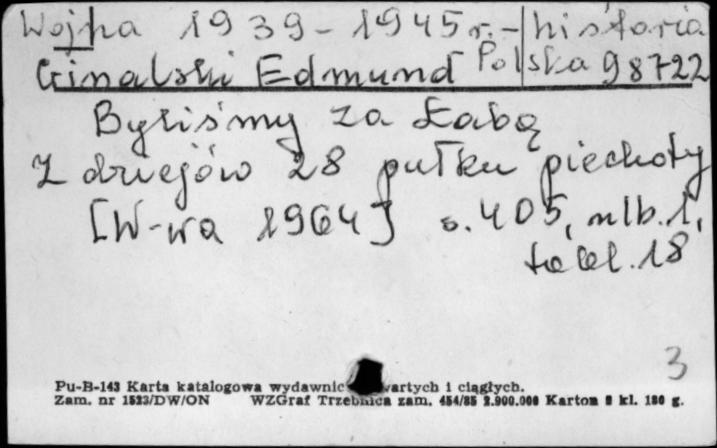 Wojna 1939-1945 r. - historia
Ginalski Edmund Polska 98722
Byliśmy za Łabą
Z dziejów 28 pułku piechoty
[W-wa 1964] s. 405, nlb. 1,
tabl. 18
3
Pu-B-143 Karta katalogowa wydawnic wartych i ciągłych.
Zam. nr 1523/DW/ON WZGraf Trzebnica zam. 454/85 2.900.000 Karton 2 kl. 180 g.